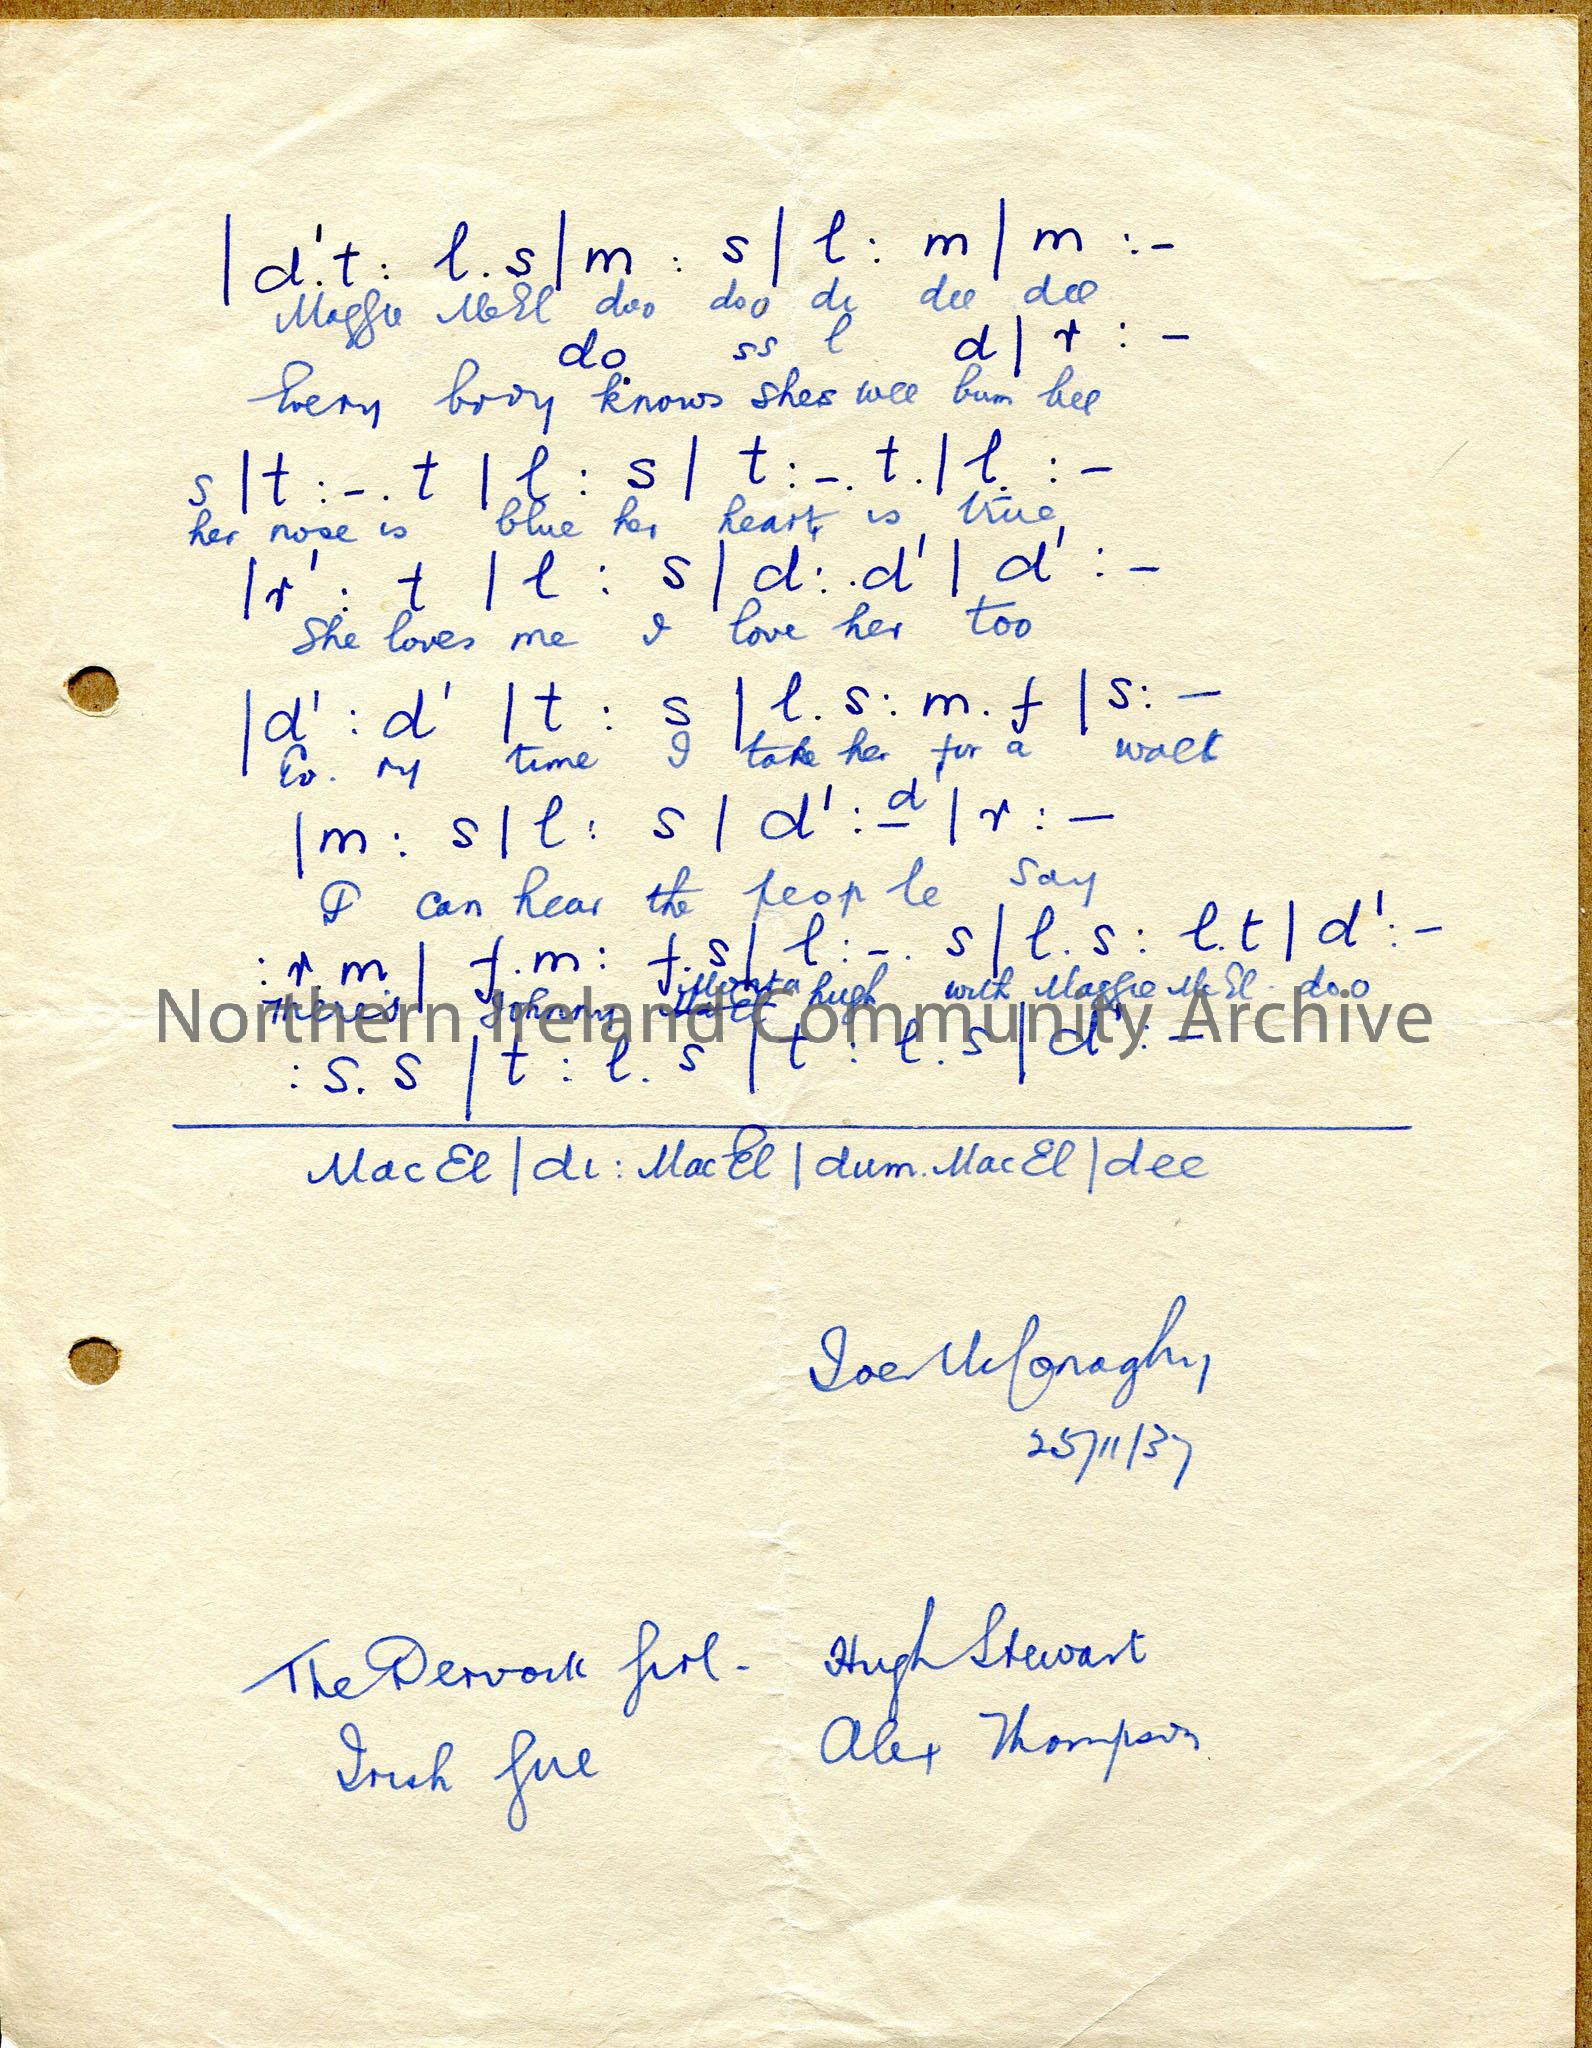 |d'.t : l.s|m : s|l : m|m :-
Maggie McEl doo doo di dee dee
do. ss l d|r : -
Every body knows shes wee bum bee
s|t :-. t |l : s| t :-. t.|l. :-
her nose is blue her heart is true
|r' : t |l : s|d: .d'| d' :-
She loves me I love her too
|d' : d' |t : s |l. s : m. f |s: -
Ev. ry time I take her for a walk
|m : s|l : s | d' :- d |r : -
I can hear the peop le say
:r m| f.m : f.s| l :-. s|l. s : l.t | d' :-
There's Johnny Monta hugh with Maggie McEl doo
Northern Ireland Community Archive
: s. s |t : l. s |t : l. s|d' : -
Mac El | di : Mac El | dum. Mac El | dee
Joe McConaghy
25/11/37
The Dervock Girl - Hugh Stewart
Irish Girl Alex Thompson